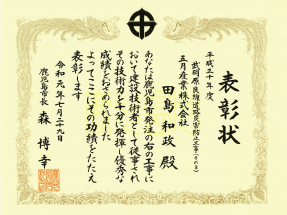 表彰状
平成三十年度
武岡原良線道路災害防止工事(その3)
五月産業株式会社
田島 和政 殿
あなたは鹿児島市発注の右の工事に
おいて建設技術者として従事され
その技術力を十分に発揮し優秀な
成績をおさめられました
よってここにその功績をたたえ
表彰します
令和元年七月二十九日
鹿児島市長 森 博幸